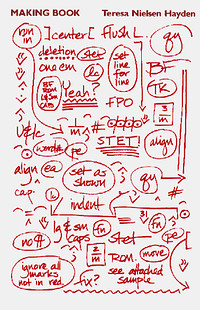 MAKING BOOK Teresa Nielsen Hayden
run in ]center[ flush L. qy
deletion stet set line for line BF
one em lc TK
BF ROM l.g. Sm CAPS Yeah? FPO
3 m
U&lc mg # align
wordbk pe STET!
align ea set as shown qy #
cap. lc indent
no¶ lg & sm caps fn fn
Stet pe
3 m ROM. move
ignore all marks not in red see attached sample
fix?